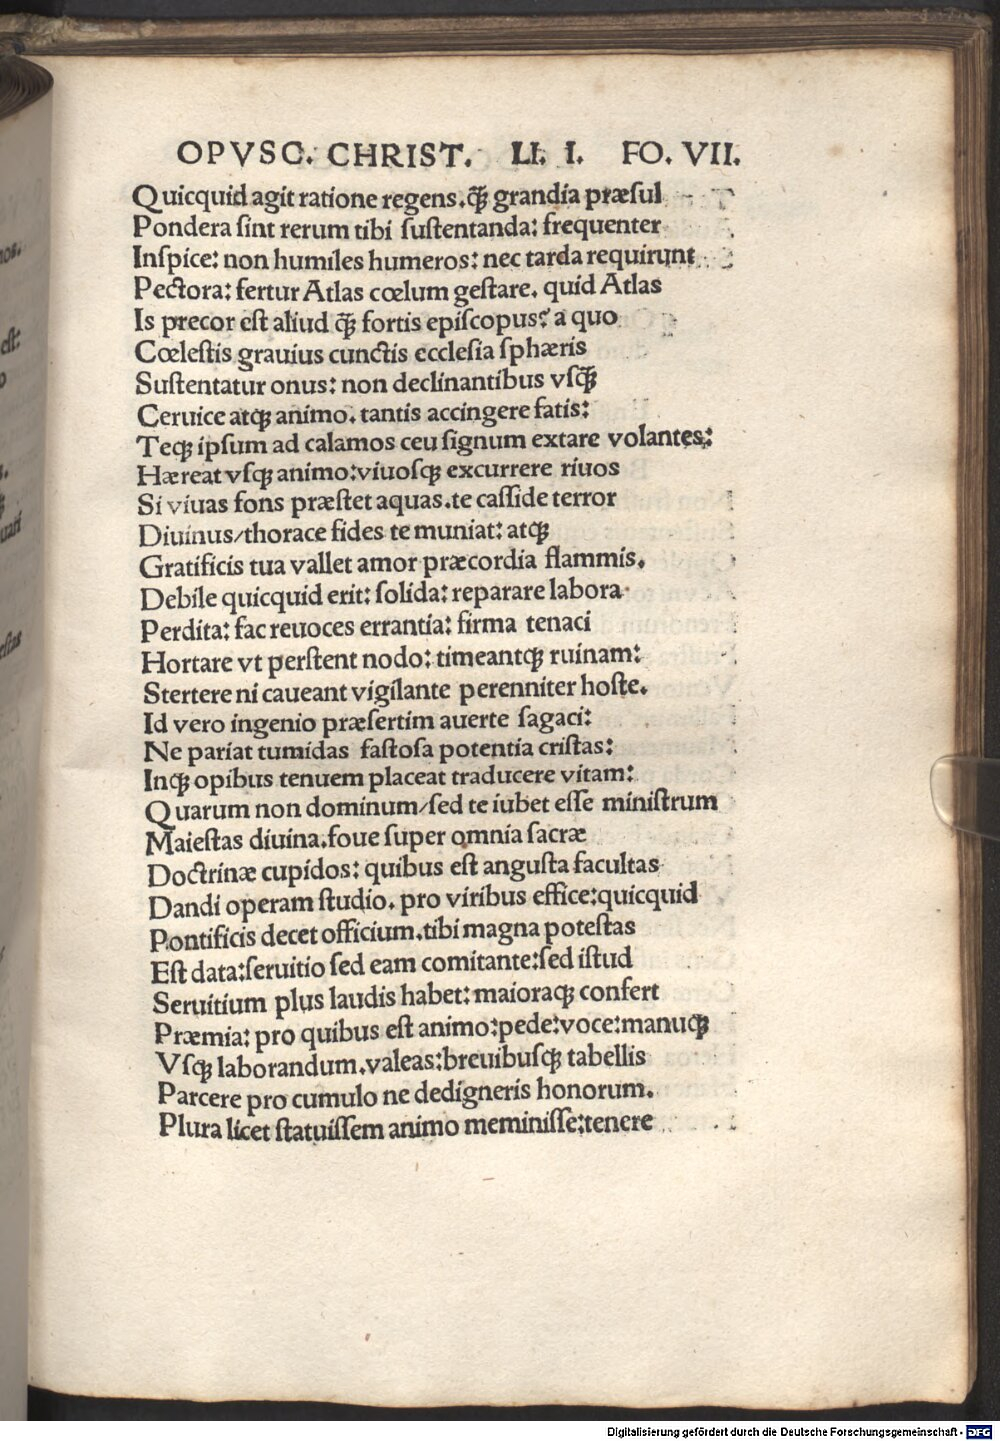 OPVSC. CHRIST. LI. I. FO. VII.
Quicquid agit ratione regens.q̃ꝫ grandia præsul
Pondera sint rerum tibi sustentanda: frequenter
Inspice: non humiles humeros: nec tarda requirunt
Pectora: fertur Atlas cœlum gestare. quid Atlas
Is precor est aliud q̃ꝫ fortis episcopus? a quo
Cœlestis grauius cunctis ecclesia sphæris
Sustentatur onus: non declinantibus vsq̃ꝫ
Ceruice atqꝫ animo. tantis accingere fatis:
Teqꝫ ipsum ad calamos ceu signum extare volantes:
Hæreat vsqꝫ animo:viuosqꝫ excurrere riuos
Si viuas fons præstet aquas.te casside terror
Diuinus/thorace fides te muniat: atqꝫ
Gratificis tua vallet amor præcordia flammis.
Debile quicquid erit: solida: reparare labora
Perdita: fac reuoces errantia: firma tenaci
Hortare vt perstent nodo: timeantqꝫ ruinam:
Stertere ni caueant vigilante perenniter hoste.
Id vero ingenio præsertim auerte sagaci:
Ne pariat tumidas fastosa potentia cristas:
Inqꝫ opibus tenuem placeat traducere vitam:
Quarum non dominum/sed te iubet esse ministrum
Maiestas diuina.foue super omnia sacræ
Doctrinæ cupidos: quibus est angusta facultas
Dandi operam studio. pro viribus effice:quicquid
Pontificis decet officium.tibi magna potestas
Est data:seruitio sed eam comitante:sed istud
Seruitium plus laudis habet: maioraqꝫ confert
Præmia: pro quibus est animo:pede:voce:manuqꝫ
Vsqꝫ laborandum.valeas:breuibusqꝫ tabellis
Parcere pro cumulo ne dedigneris honorum.
Plura licet statuissem animo meminisse:tenere
Digitalisierung gefördert durch die Deutsche Forschungsgemeinschaft - DFG